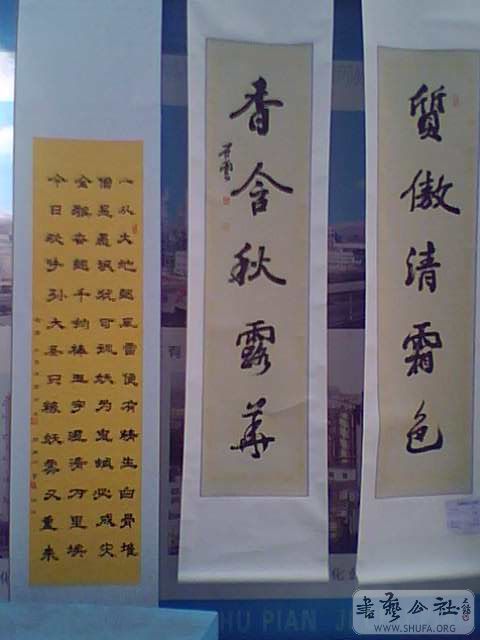 質傲清霜色
香含秋露華
一从大地起風雷便有精生白骨堆
僧是愚氓猶可訓妖为鬼蜮必成灾
金猴奮起千鈞棒玉宇澄清万里埃
今日欢呼孙大圣只緣妖霧又重来
有
化
HU PIAN J
書藝公社
WWW.SHUFA.ORG